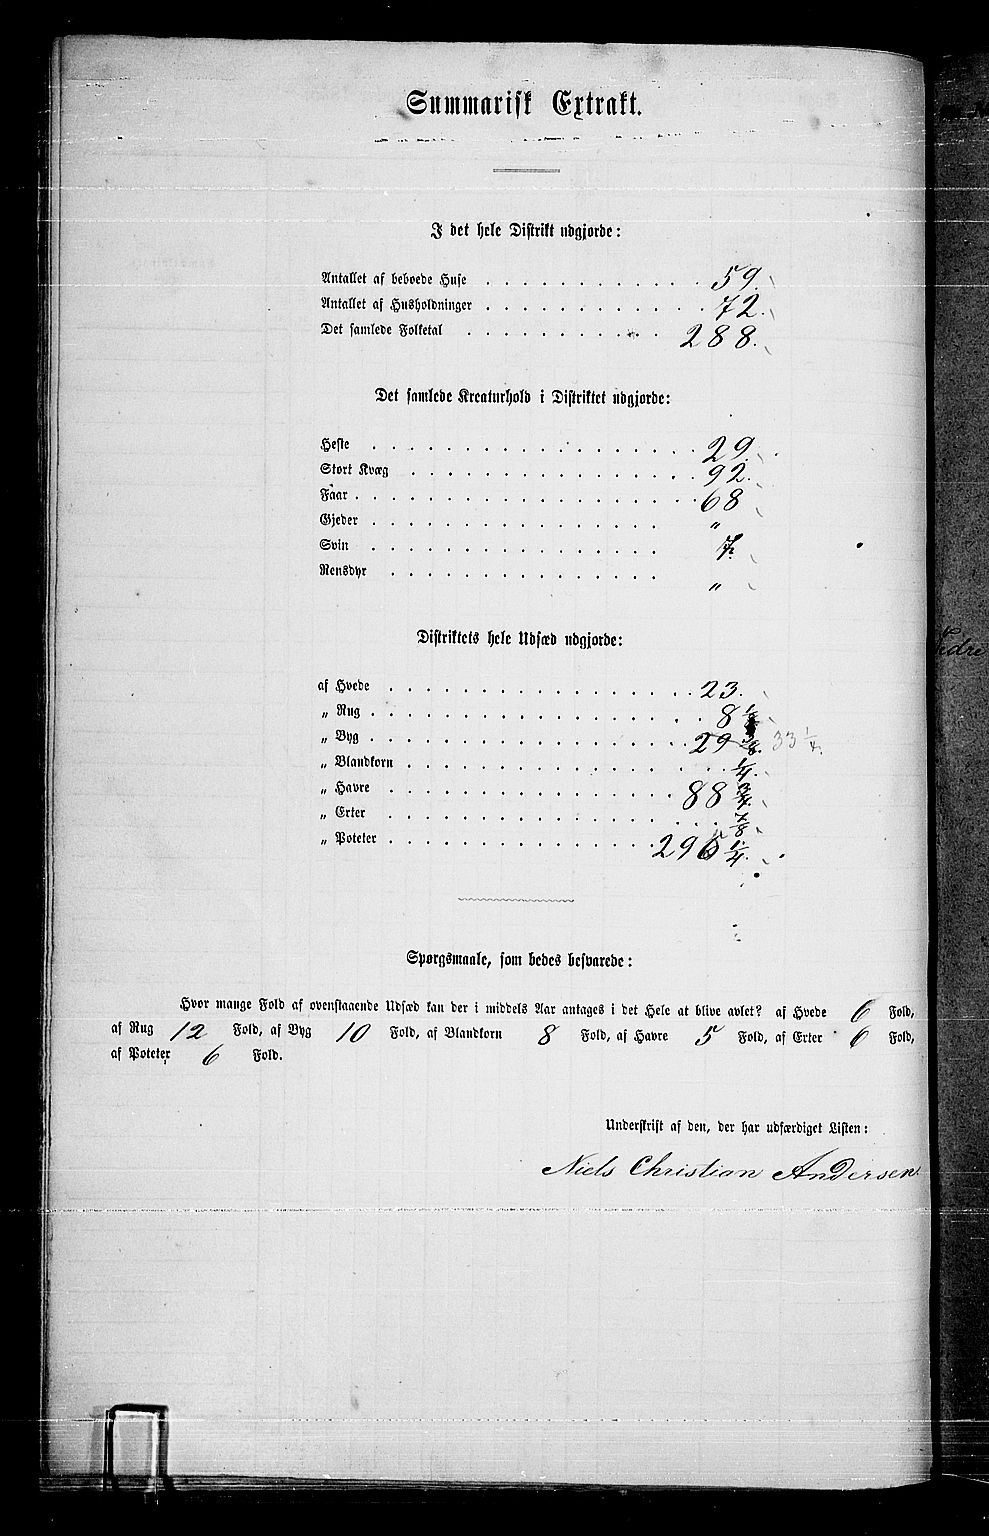 Summarisk Extrakt.
I det hele Distrikt udgjorde:
Antallet af beboede Huse 59.
Antallet af Husholdninger 72.
Det samlede Folketal 288.
Det samlede Kreaturhold i Distriktet udgjorde:
Heste 29.
Stort Kvæg 92.
Faar 68
Gjeder "
Svin 7.
Rensdyr "
Distriktets hele Udsæd udgjorde:
af Hvede 23.
„ Rug 8 1/8
„ Byg 29 3/8. 33 1/4.
„ Blandkorn 1/4.
„ Havre 88 3/4.
„ Erter 7/8
„ Poteter 296 1/4.
Spørgsmaale, som bedes besvarede:
Hvor mange Fold af ovenstaaende Udsæd kan der i middels Aar antages i det Hele at blive avlet? af Hvede 6 Fold,
af Rug 12 Fold, af Byg 10 Fold, af Blandkorn 8 Fold, af Havre 5 Fold, af Erter 6 Fold,
af Poteter 6 Fold.
Underskrift af den, der har udfærdiget Listen:
Niels Christian Andersen